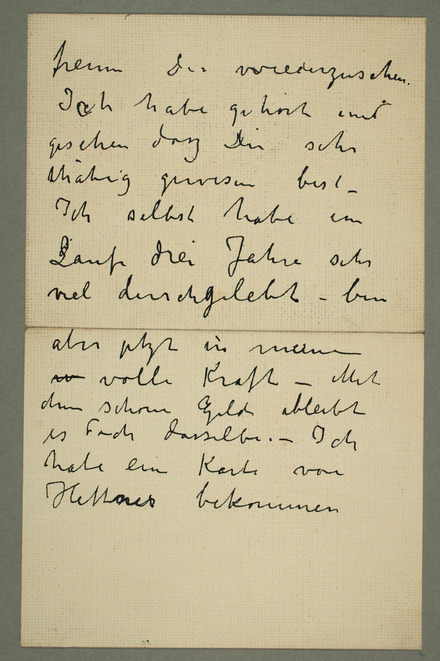 freuen Dir wiederzusehen.
Ich habe gehört und
gesehen dasz Du sehr
thätig gewesen bist –
Ich selbst habe im
Laufe drei Jahre sehr
viel durchgelebt – bin
aber jetzt in meine
volle Kraft – Mit
dem schöne Gelde bleibt
es doch dasselbe. – Ich
habe ein Karte von
bekommen